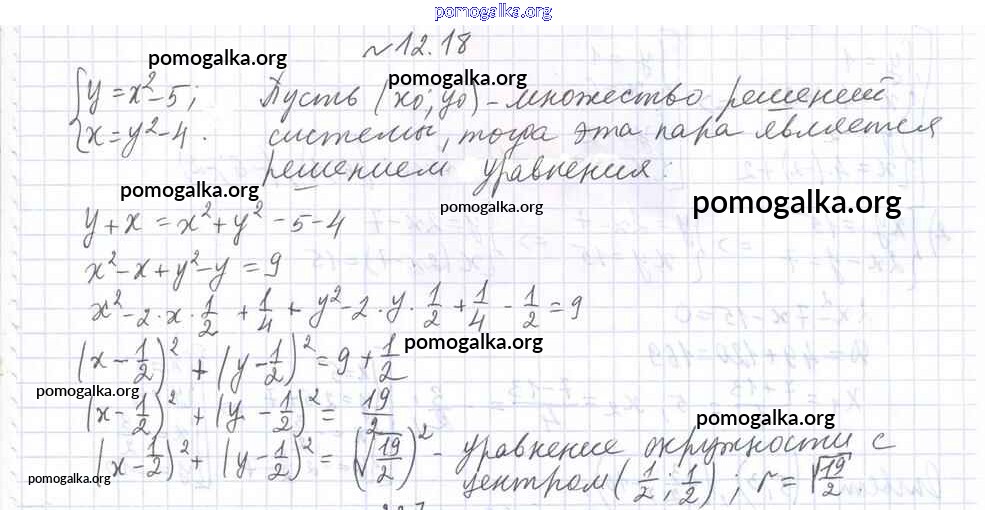 pomogalka.org
№12.18
pomogalka.org
pomogalka.org
{y = x² - 5; Пусть (x₀; y₀) - множество решений
{x = y² - 4. системы, тогда эта пара является
решением уравнения:
pomogalka.org
pomogalka.org
pomogalka.org
y + x = x² + y² - 5 - 4
x² - x + y² - y = 9
x² - 2·x·1/2 + 1/4 + y² - 2·y·1/2 + 1/4 - 1/2 = 9
pomogalka.org
(x - 1/2)² + (y - 1/2)² = 9 + 1/2
pomogalka.org
(x - 1/2)² + (y - 1/2)² = 19/2
pomogalka.org
(x - 1/2)² + (y - 1/2)² = (√19/2)² - уравнение окружности с
pomogalka.org
центром (1/2; 1/2); r = √19/2.